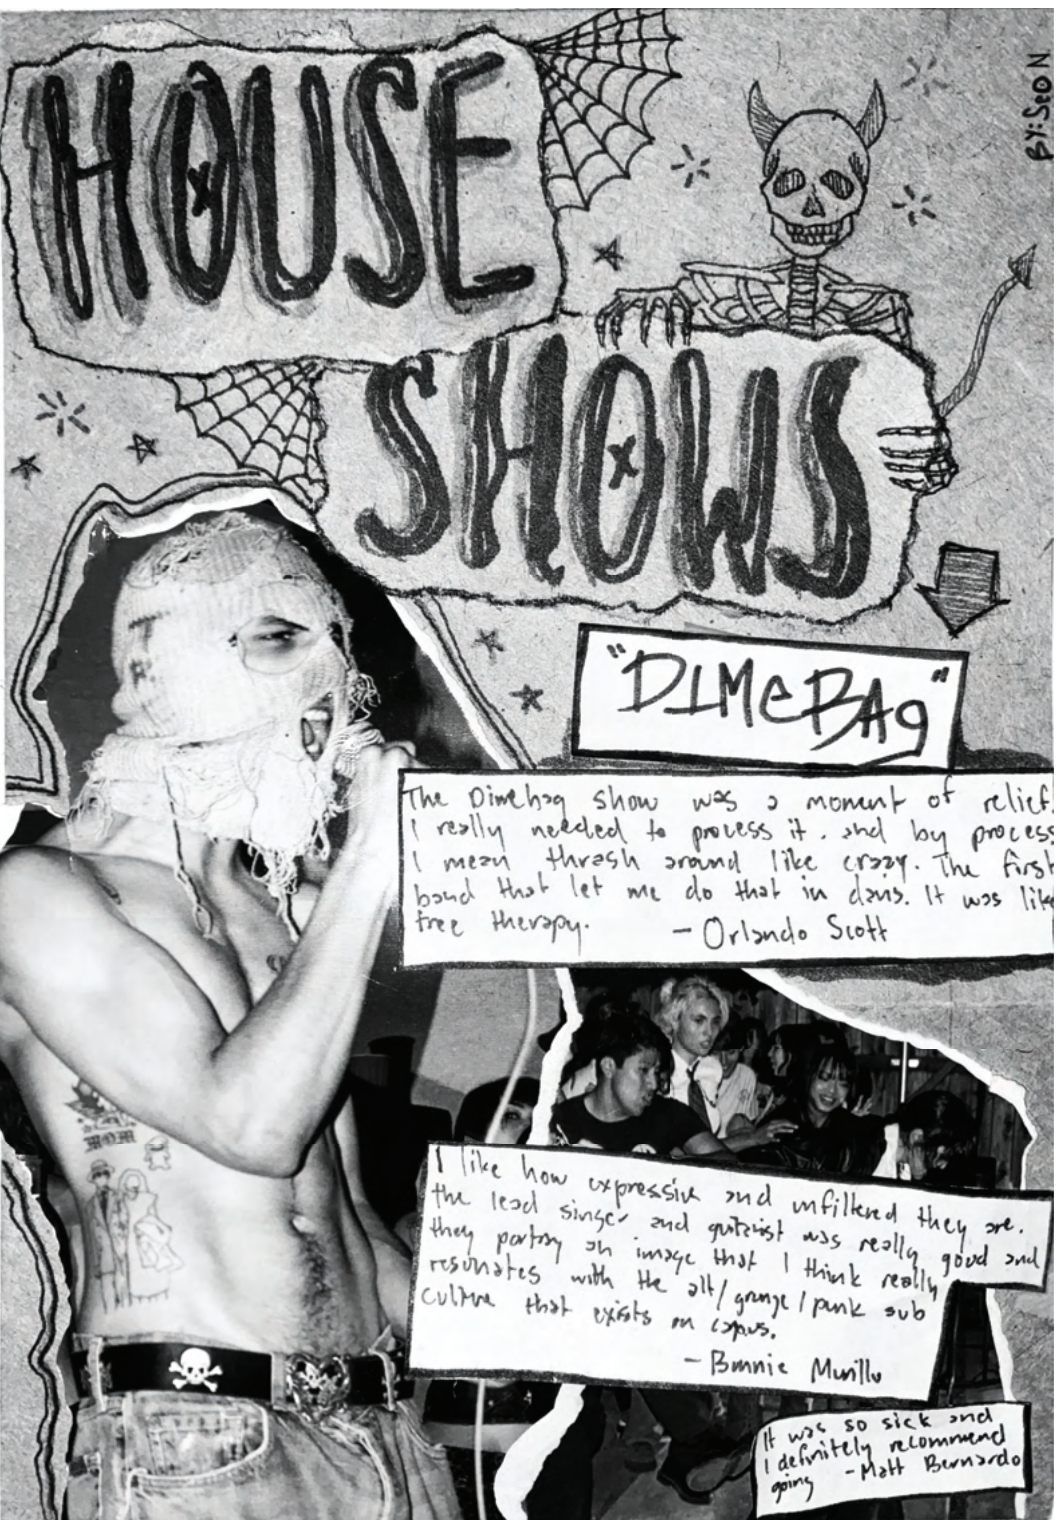 HOUSE
BY: SEON
SHOWS
"DIMEBAG"
The Dimebag show was a moment of relief
I really needed to process it. and by process
I mean thrash around like crazy. The first
band that let me do that in days. It was like
free therapy. - Orlando Scott
I like how expressive and unfiltered they are.
the lead singer and guitarist was really good and
they portray an image that I think really
resonates with the alt/grunge/punk sub
culture that exists on campus.
- Bonnie Murillo
It was so sick and
I definitely recommend
going - Matt Bernardo
MOM